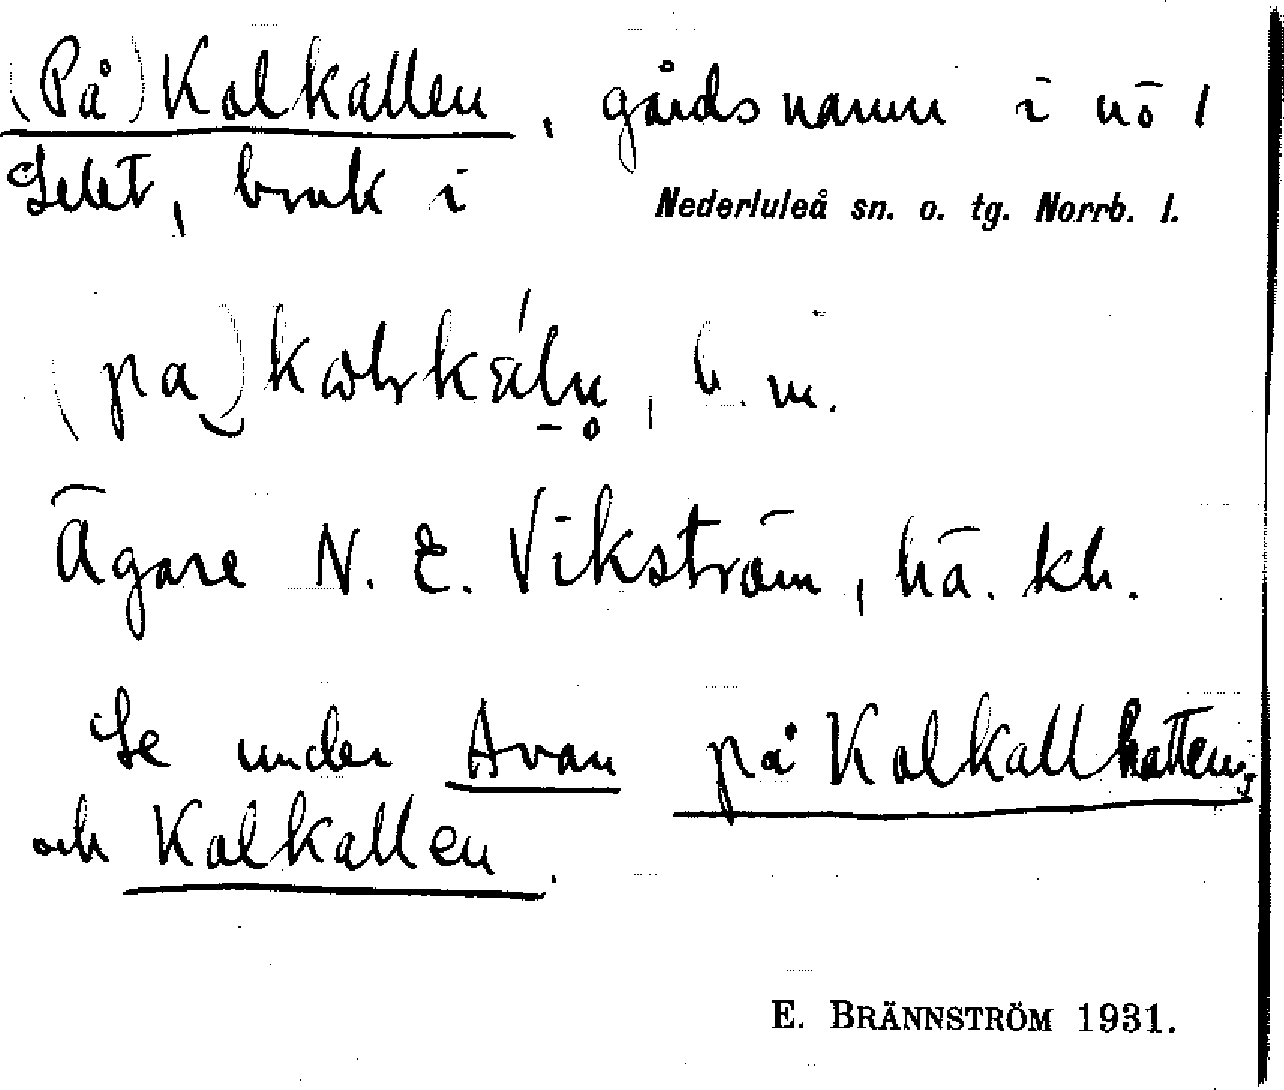 (På) Kalkallen, gårdsnamn i nö /
Selet, bruk i Nederluleå sn. o. tg. Norrb. l.
(pa)
Ägare N. E. Vikström, hä. kh.
Se under Avan på Kalkallhatten,
och Kalkallen.
E. BRÄNNSTRÖM 1931.